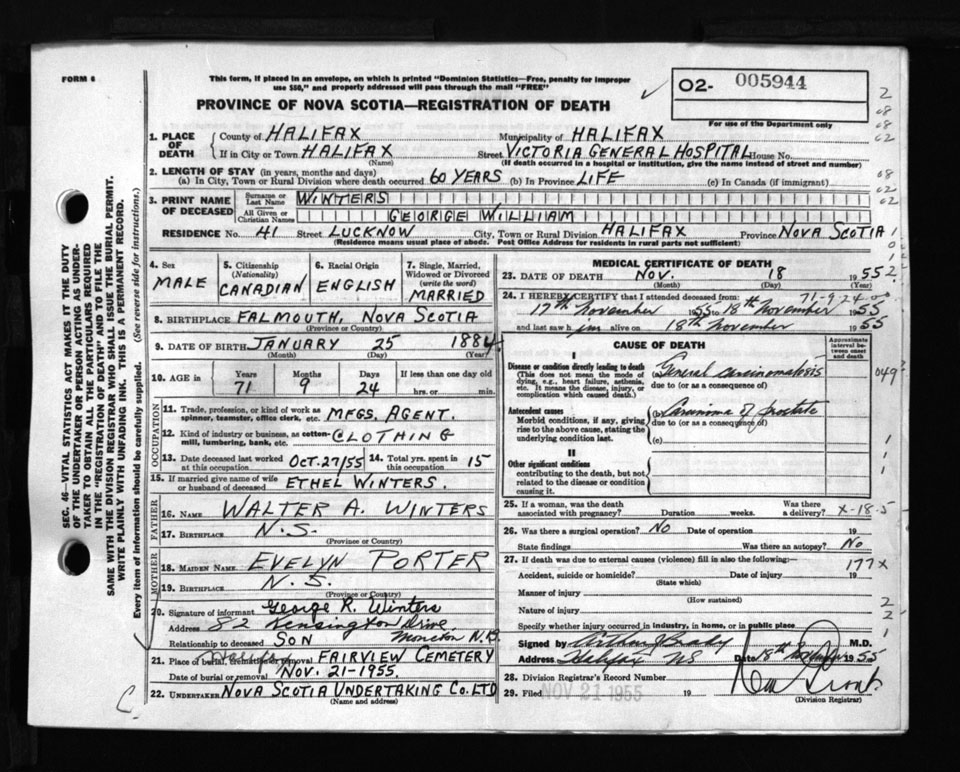 FORM 6
This form, if placed in an envelope, on which is printed "Dominion Statistics—Free, penalty for improper
use $50," and properly addressed will pass through the mail "FREE"
PROVINCE OF NOVA SCOTIA—REGISTRATION OF DEATH
02- 005944
For use of the Department only
1. PLACE OF DEATH County of HALIFAX Municipality of HALIFAX
If in City or Town HALIFAX Street VICTORIA GENERAL HOSPITAL House No.
(Name) (If death occurred in a hospital or institution, give the name instead of street and number)
2. LENGTH OF STAY (in years, months and days)
(a) In City, Town or Rural Division where death occurred 60 YEARS (b) In Province LIFE (c) In Canada (if immigrant)
3. PRINT NAME OF DECEASED Surname or Last Name WINTERS
All Given or Christian Names GEORGE WILLIAM
RESIDENCE No. 41 Street LUCKNOW City, Town or Rural Division HALIFAX Province NOVA SCOTIA
(Residence means usual place of abode. Post Office Address for residents in rural parts not sufficient)
4. Sex MALE
5. Citizenship (Nationality) CANADIAN
6. Racial Origin ENGLISH
7. Single, Married, Widowed or Divorced (write the word) MARRIED
8. BIRTHPLACE FALMOUTH, NOVA SCOTIA
(Province or Country)
9. DATE OF BIRTH JANUARY 25 1884.
(Month) (Day) (Year)
10. AGE in Years Months Days If less than one day old
71 9 24 hrs. or min.
OCCUPATION
11. Trade, profession, or kind of work as spinner, teamster, office clerk, etc. MFGS. AGENT.
12. Kind of industry or business, as cotton-mill, lumbering, bank, etc. CLOTHING
13. Date deceased last worked at this occupation OCT. 27/55 14. Total yrs. spent in this occupation 15
15. If married give name of wife or husband of deceased ETHEL WINTERS.
FATHER
16. NAME WALTER A. WINTERS
17. BIRTHPLACE N.S.
(Province or Country)
MOTHER
18. MAIDEN NAME EVELYN PORTER
19. BIRTHPLACE N.S.
(Province or Country)
20. Signature of informant George R. Winters
Address 82 Kensington Drive
Moncton N.B.
Relationship to deceased SON
21. Place of burial, cremation or removal FAIRVIEW CEMETERY
Date of burial or removal NOV. 21-1955.
22. UNDERTAKER NOVA SCOTIA UNDERTAKING CO. LTD
(Name and address)
MEDICAL CERTIFICATE OF DEATH
23. DATE OF DEATH NOV. 18 1955
(Month) (Day) (Year)
71-9-24
24. I HEREBY CERTIFY that I attended deceased from:
17th November 1955 to 18th November 1955
and last saw him alive on 18th November 1955
CAUSE OF DEATH
Approximate interval between onset and death
I
Disease or condition directly leading to death
(This does not mean the mode of dying, e.g., heart failure, asthenia, etc. It means the disease, injury, or complication which caused death.)
(a) General carcinomatosis
due to (or as a consequence of)
Antecedent causes
Morbid conditions, if any, giving rise to the above cause, stating the underlying condition last.
(b) Carcinoma of prostate
due to (or as a consequence of)
(c)
II
Other significant conditions
contributing to the death, but not related to the disease or condition causing it.
25. If a woman, was the death associated with pregnancy? Duration weeks. Was there a delivery? X-18-5
26. Was there a surgical operation? NO Date of operation 19
State findings Was there an autopsy? No
27. If death was due to external causes (violence) fill in also the following:— 177X
Accident, suicide or homicide? Date of injury 19
(State which)
Manner of injury
(How sustained)
Nature of injury
Specify whether injury occurred in industry, in home, or in public place
Signed by M.D.
Address Halifax NS Date 18th November 1955
28. Division Registrar's Record Number
29. Filed NOV 21 1955 19
(Division Registrar)
SEC. 46—VITAL STATISTICS ACT MAKES IT THE DUTY
OF THE UNDERTAKER OR PERSON ACTING AS UNDER-
TAKER TO OBTAIN ALL THE PARTICULARS REQUIRED
IN THE "REGISTRATION OF DEATH" AND TO FILE THE
SAME WITH THE DIVISION REGISTRAR WHO SHALL ISSUE THE BURIAL PERMIT.
WRITE PLAINLY WITH UNFADING INK. THIS IS A PERMANENT RECORD.
Every item of information should be carefully supplied. (See reverse side for instructions.)